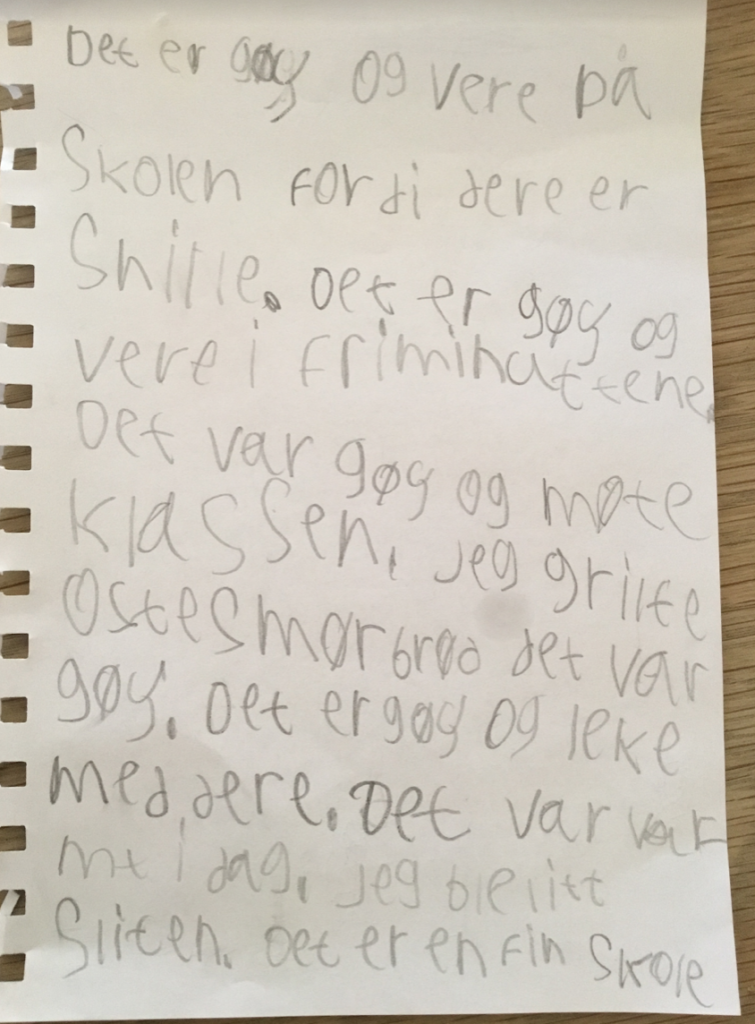 Det er gøy og vere på
Skolen fordi dere er
Snille. Det er gøy og
vere i friminuttene.
Det var gøy og møte
klassen, jeg grilte
Ostesmørbrød det var
gøy. Det er gøy og leke
med dere. Det var var
mt i dag, jeg ble litt
Sliten. Det er en fin skole